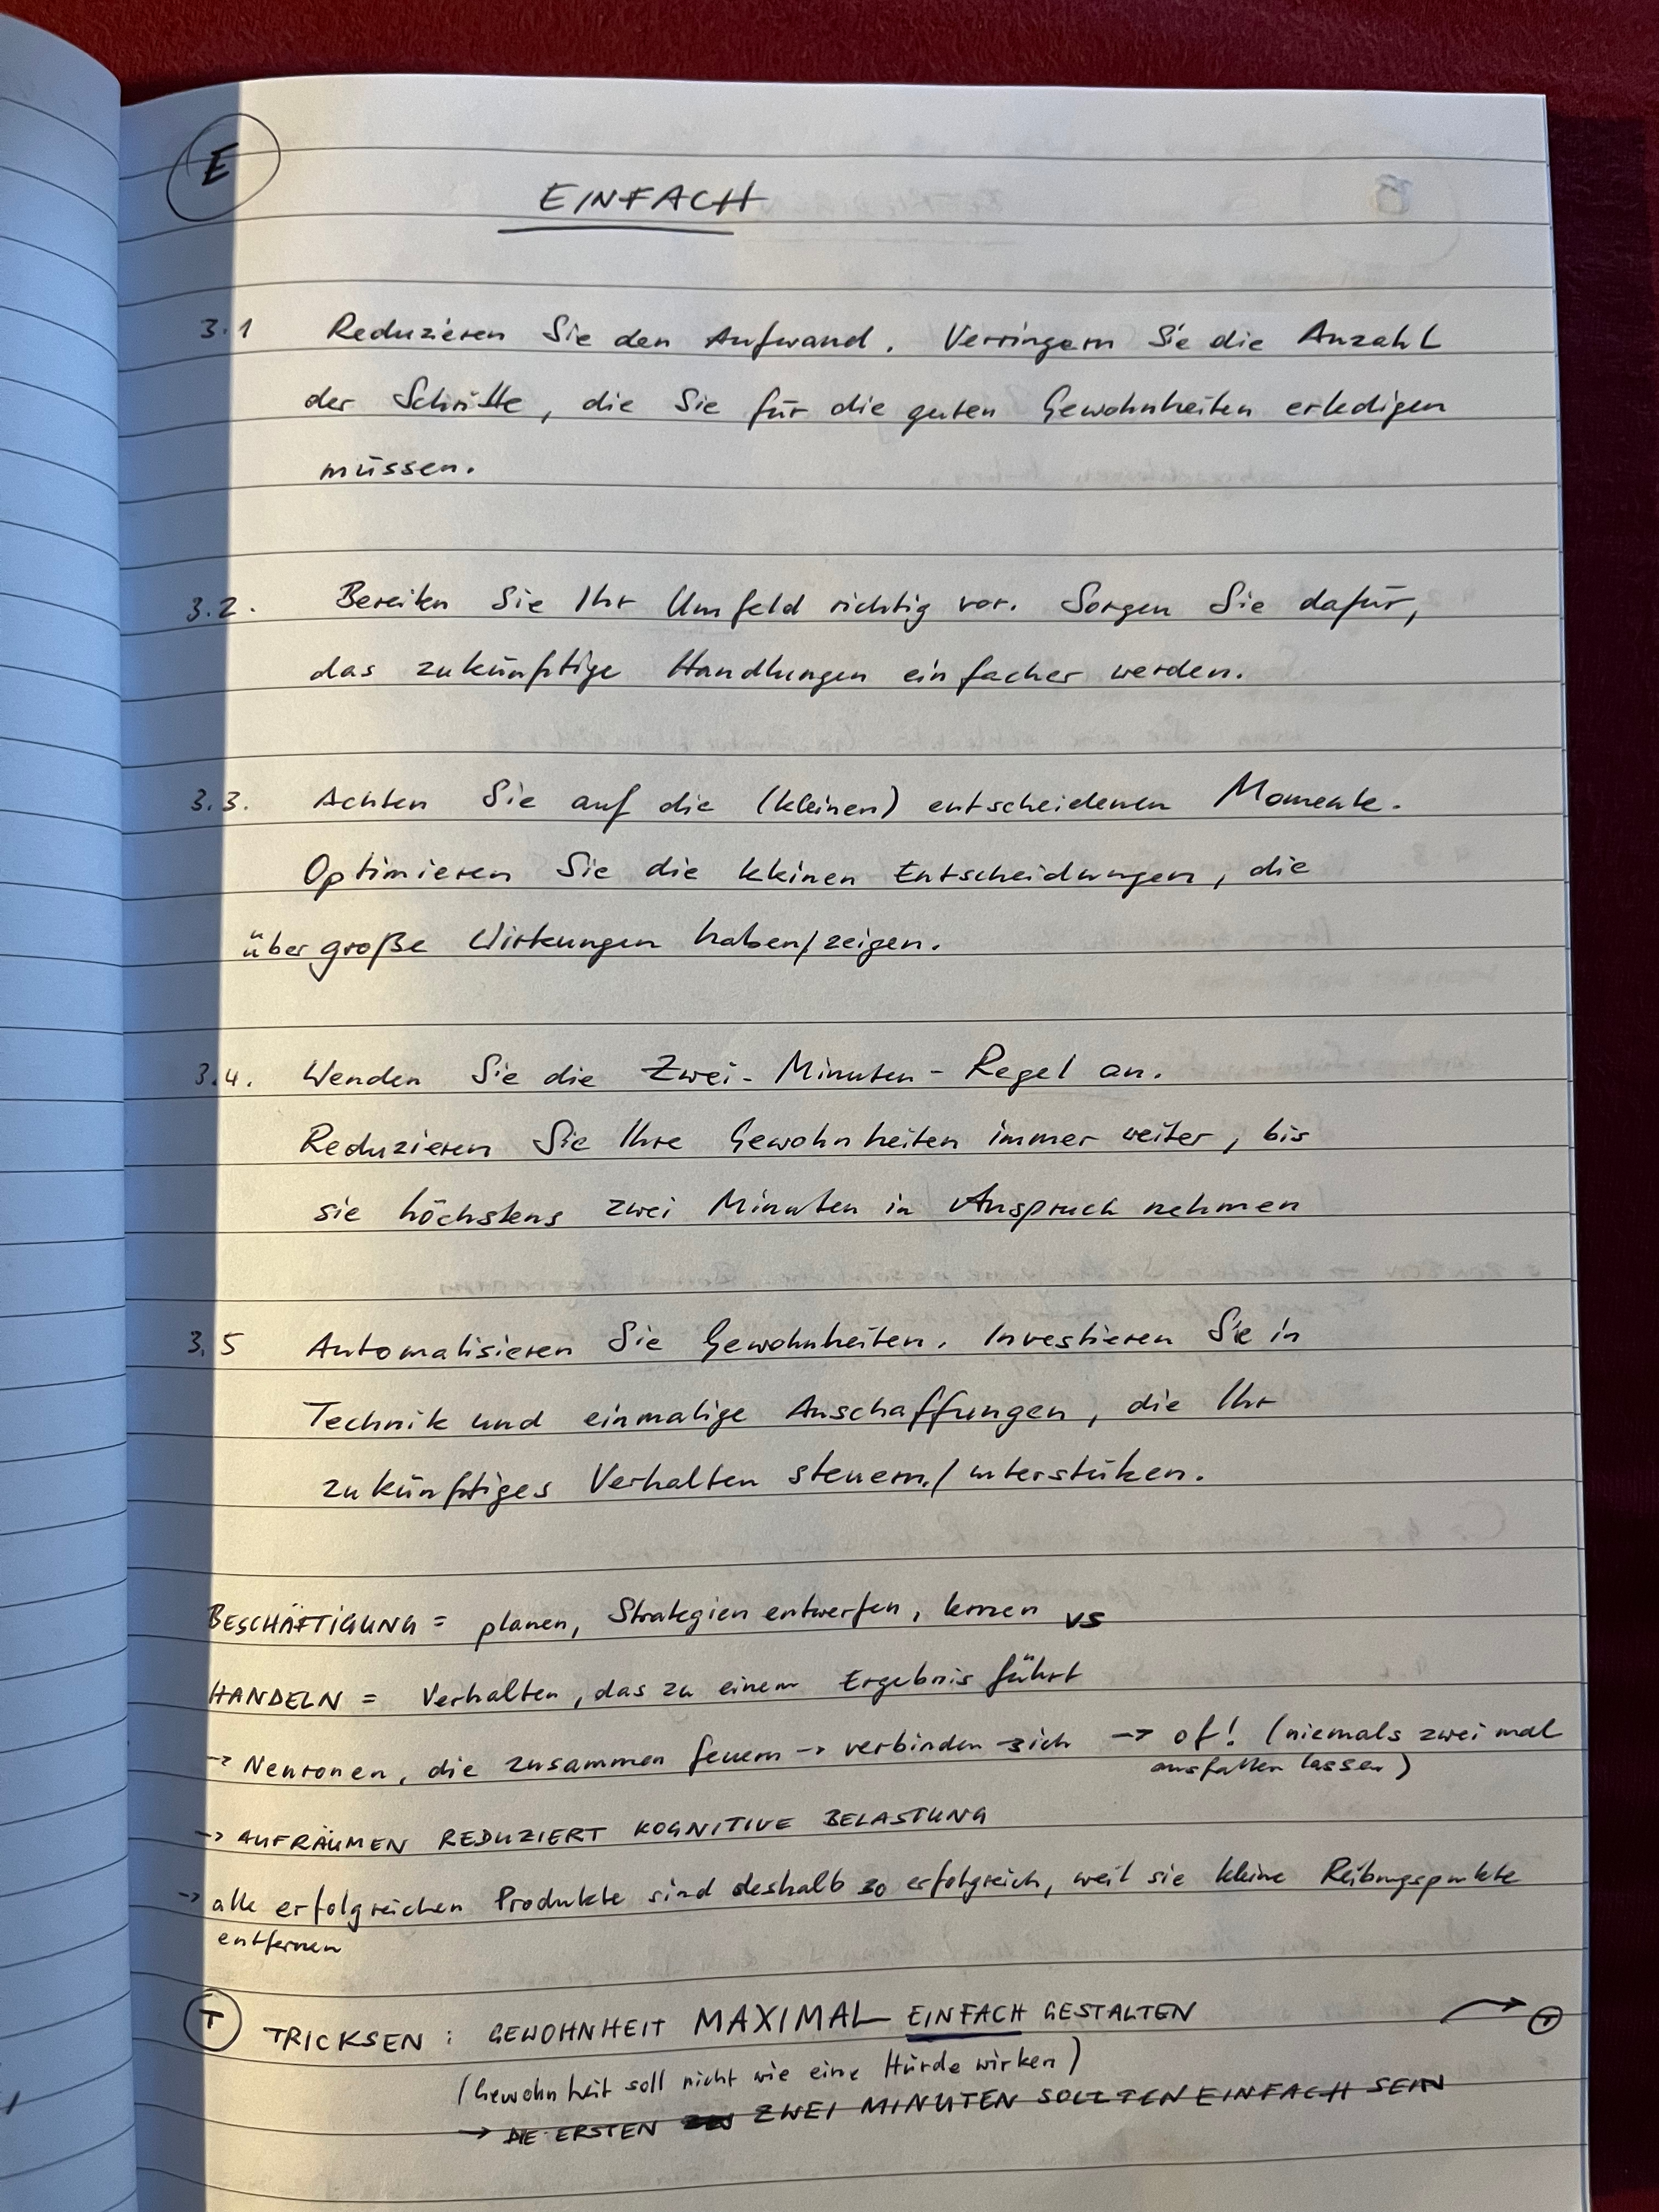 E
EINFACH
3.1 Reduzieren Sie den Aufwand. Verringern Sie die Anzahl
der Schritte, die Sie für die guten Gewohnheiten erledigen
müssen.
3.2. Bereiten Sie Ihr Umfeld richtig vor. Sorgen Sie dafür,
das zukünftige Handlungen einfacher werden.
3.3. Achten Sie auf die (kleinen) entscheidenen Momente.
Optimieren Sie die kleinen Entscheidungen, die
über große Wirkungen haben/zeigen.
3.4. Wenden Sie die Zwei-Minuten-Regel an.
Reduzieren Sie Ihre Gewohnheiten immer weiter, bis
sie höchstens zwei Minuten in Anspruch nehmen
3.5 Automatisieren Sie Gewohnheiten. Investieren Sie in
Technik und einmalige Anschaffungen, die Ihr
zukünftiges Verhalten steuern./unterstüken.
BESCHÄFTIGUNG = planen, Strategien entwerfen, lernen vs
HANDELN = Verhalten, das zu einem Ergebnis führt
→ Neuronen, die zusammen feuern → verbinden sich → of! (niemals zwei mal
ausfallen lassen)
→ AUFRÄUMEN REDUZIERT KOGNITIVE BELASTUNG
→ alle erfolgreichen Produkte sind deshalb so erfolgreich, weil sie kleine Reibungspunkte
entfernen
T TRICKSEN: GEWOHNHEIT MAXIMAL EINFACH GESTALTEN → T
(Gewohnheit soll nicht wie eine Hürde wirken)
→ DIE ERSTEN ZWEI MINUTEN SOLLTEN EINFACH SEIN